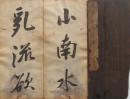 小南水
乳滋欲